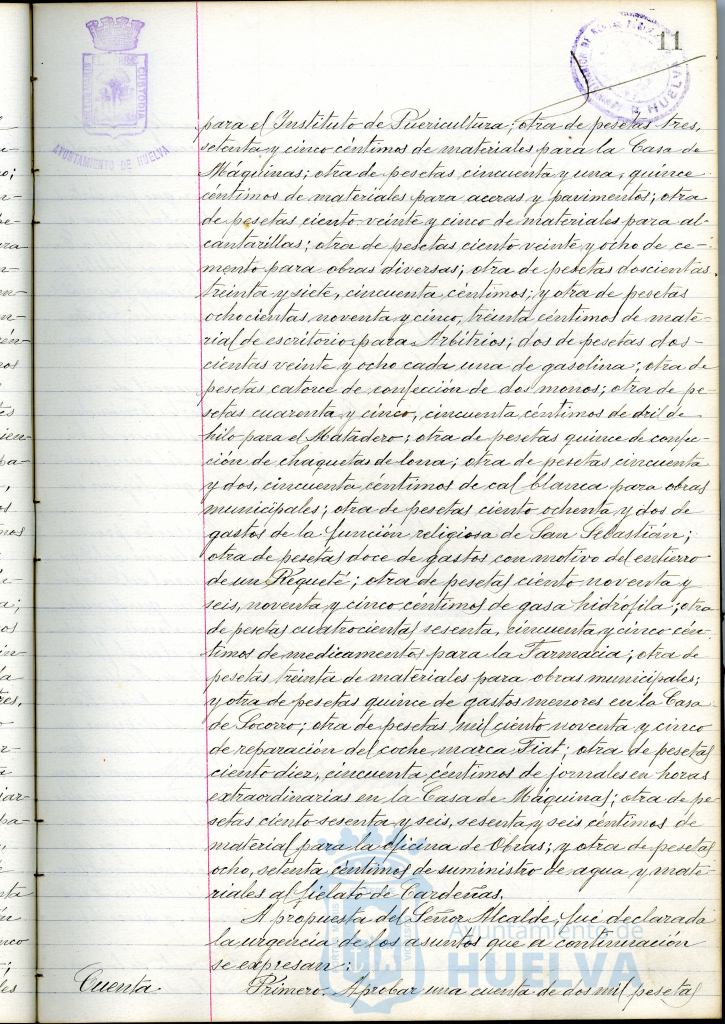 11
AYUNTAMIENTO DE HUELVA
para el Instituto de Puericultura; otra de pesetas tres,
setenta y cinco céntimos de materiales para la Casa de
Máquinas; otra de pesetas cincuenta y una, quince
céntimos de materiales para aceras y pavimentos; otra
de pesetas ciento veinte y cinco de materiales para al-
cantarillas; otra de pesetas ciento veinte y ocho de ce-
mento para obras diversas; otra de pesetas doscientas
treinta y siete, cincuenta céntimos; y otra de pesetas
ochocientas noventa y cinco, treinta céntimos de mate-
rial de escritorio para Arbitrios; dos de pesetas dos-
cientas veinte y ocho cada una de gasolina; otra de
pesetas catorce de confección de dos monos; otra de pe-
setas cuarenta y cinco, cincuenta céntimos de dril de
hilo para el Matadero; otra de pesetas quince de confec-
ción de chaquetas de lona; otra de pesetas cincuenta
y dos, cincuenta céntimos de cal blanca para obras
municipales; otra de pesetas ciento ochenta y dos de
gastos de la función religiosa de San Sebastián;
otra de pesetas doce de gastos con motivo del entierro
de un Requeté; otra de pesetas ciento noventa y
seis, noventa y cinco céntimos de gasa hidrófila; otra
de pesetas cuatrocientas sesenta, cincuenta y cinco cén-
timos de medicamentos para la Farmacia; otra de
pesetas treinta de materiales para obras municipales;
y otra de pesetas quince de gastos menores en la Casa
de Socorro; otra de pesetas mil ciento noventa y cinco
de reparación del coche marca Fiat; otra de pesetas
ciento diez, cincuenta céntimos de jornales en horas
extraordinarias en la Casa de Máquinas; otra de pe-
setas ciento sesenta y seis, sesenta y seis céntimos de
material para la oficina de Obras; y otra de pesetas
ocho, setenta céntimos de suministro de agua y mate-
riales al fielato de Cardeñas.
A propuesta del Señor Alcalde, fué declarada
la urgencia de los asuntos que a continuación
se expresan:
Cuenta
Primero. Aprobar una cuenta de dos mil pesetas
Ayuntamiento de
HUELVA